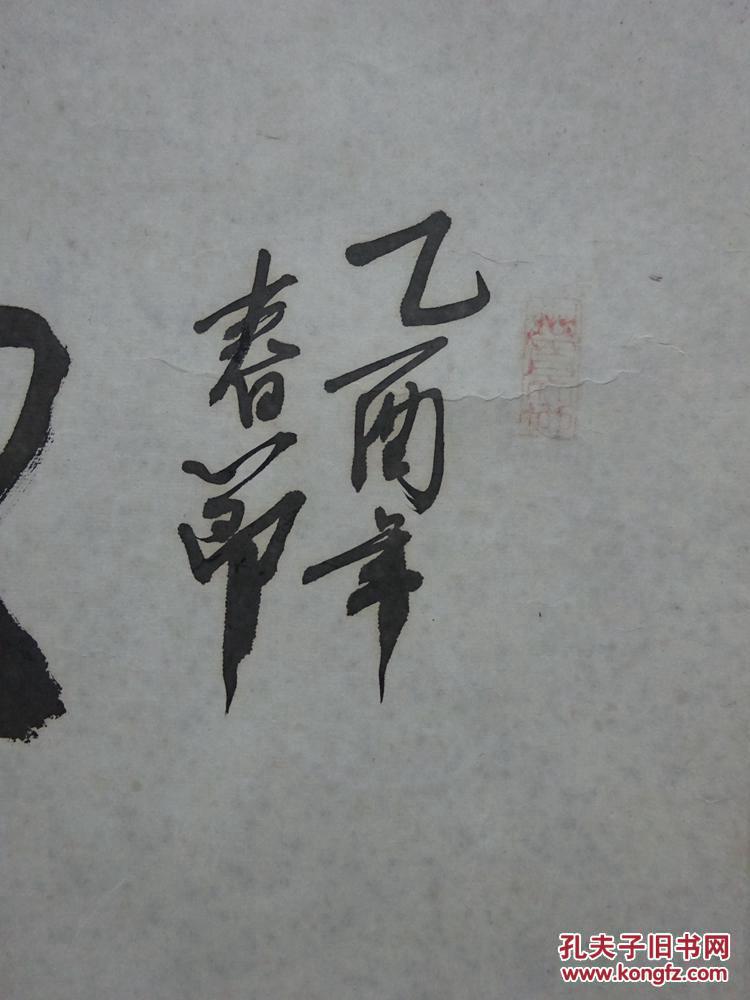 乙酉年
春節
孔夫子旧书网
www.kongfz.com